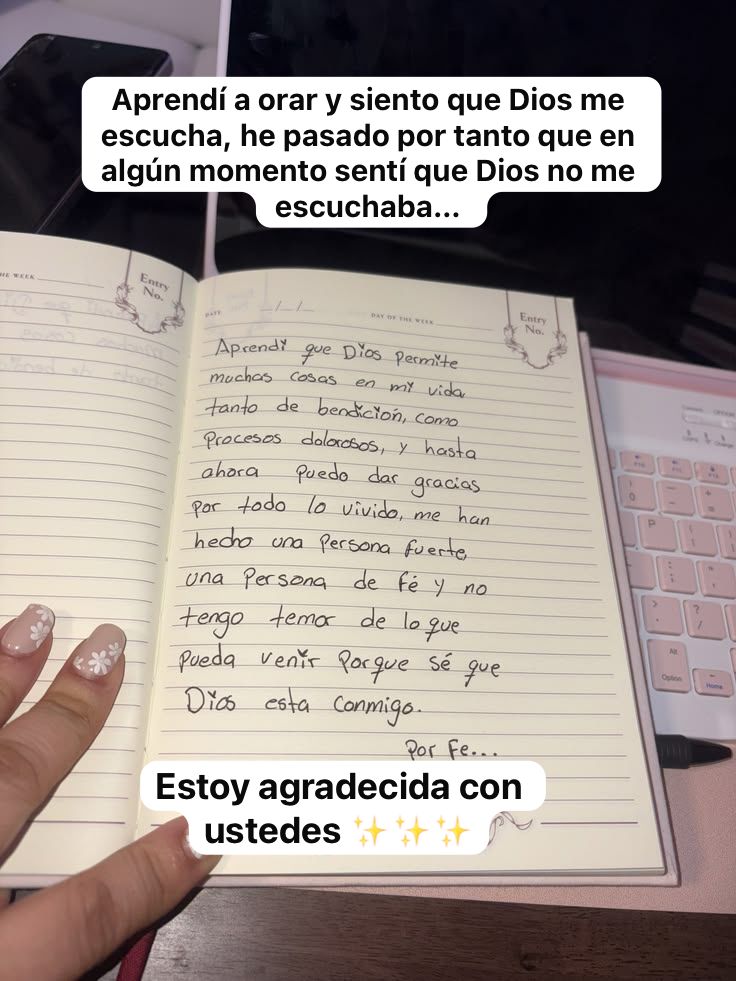 Aprendí a orar y siento que Dios me
escucha, he pasado por tanto que en
algún momento sentí que Dios no me
escuchaba...
HE WEEK
Entry
No.
DATE
_/_/_
DAY OF THE WEEK
Entry
No.
Aprendi que Dios permite
muchas cosas en mi vida
tanto de bendición, como
Procesos dolorosos, y hasta
ahora puedo dar gracias
por todo lo vivido, me han
hecho una persona fuerte,
una persona de fé y no
tengo temor de lo que
pueda venir Porque sé que
Dios esta conmigo.
Por Fe...
Estoy agradecida con
ustedes ✨✨✨
P
Alt
Option
Home